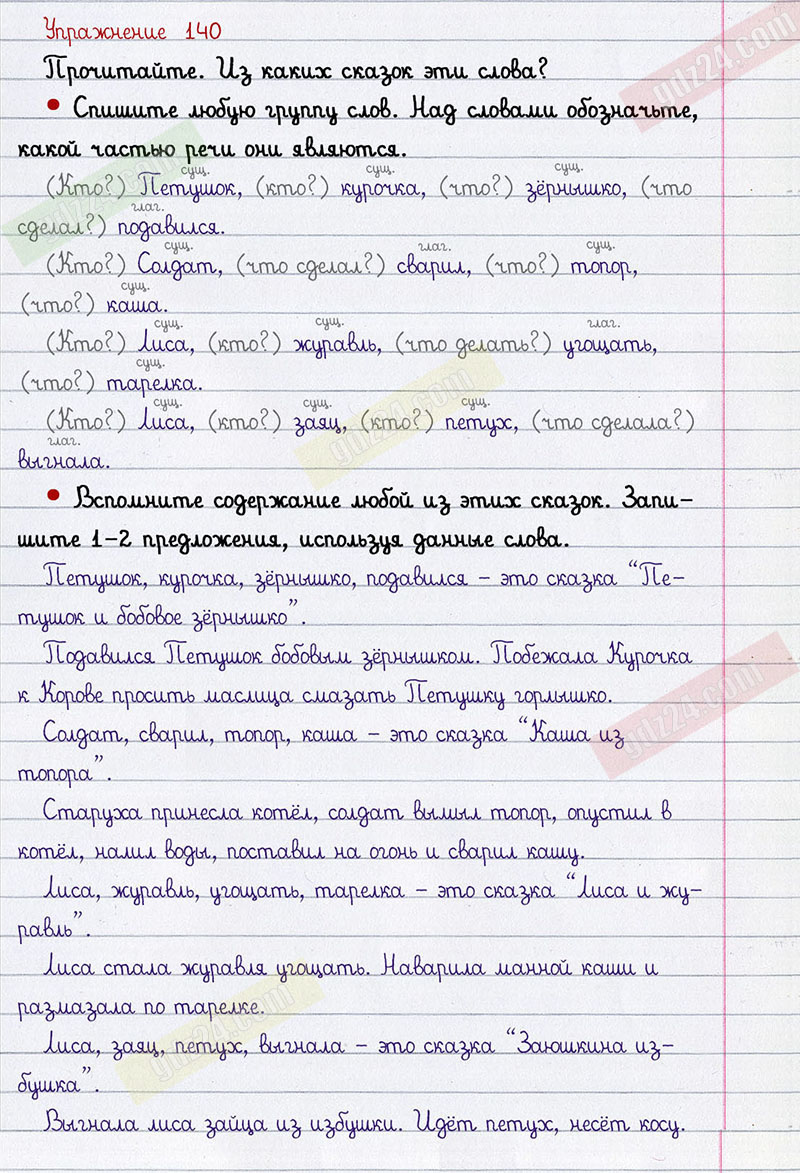 Упражнение 140
Прочитайте. Из каких сказок эти слова?
• Спишите любую группу слов. Над словами обозначьте,
какой частью речи они являются.
сущ. сущ. сущ.
(Кто?) Петушок, (кто?) курочка, (что?) зёрнышко, (что
глаг.
сделал?) подавился.
сущ. глаг. сущ.
(Кто?) Солдат, (что сделал?) сварил, (что?) топор,
сущ.
(что?) каша.
сущ. сущ. глаг.
(Кто?) Лиса, (кто?) журавль, (что делать?) угощать,
сущ.
(что?) тарелка.
сущ. сущ. сущ.
(Кто?) Лиса, (кто?) заяц, (кто?) петух, (что сделала?)
глаг.
выгнала.
• Вспомните содержание любой из этих сказок. Запи-
шите 1-2 предложения, используя данные слова.
Петушок, курочка, зёрнышко, подавился – это сказка “Пе-
тушок и бобовое зёрнышко”.
Подавился Петушок бобовым зёрнышком. Побежала Курочка
к Корове просить маслица смазать Петушку горлышко.
Солдат, сварил, топор, каша – это сказка “Каша из
топора”.
Старуха принесла котёл, солдат вымыл топор, опустил в
котёл, налил воды, поставил на огонь и сварил кашу.
Лиса, журавль, угощать, тарелка – это сказка “Лиса и жу-
равль”.
Лиса стала журавля угощать. Наварила манной каши и
размазала по тарелке.
Лиса, заяц, петух, выгнала – это сказка “Заюшкина из-
бушка”.
Выгнала лиса зайца из избушки. Идёт петух, несёт косу.
gdz24.com
gdz24.com
gdz24.com
gdz24.com
gdz24.com